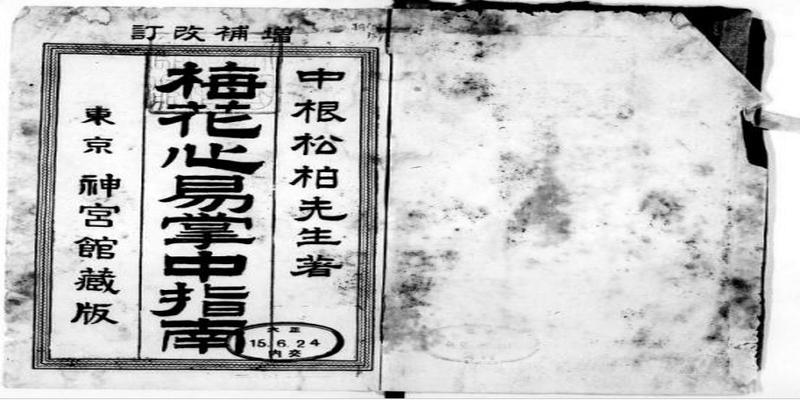 増補改訂
中根松柏先生著
梅花心易掌中指南
東京 神宮館蔵版
大正
15.6.24
内交